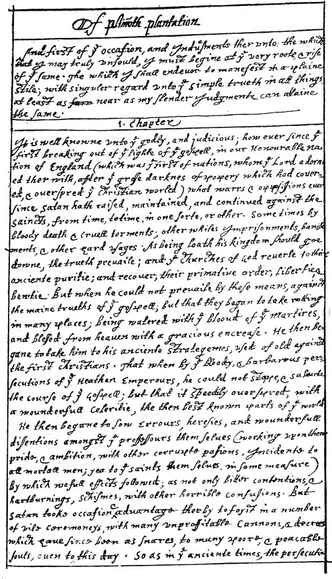 Of plimoth plantation
And first of yᵉ occasion, and Indusments ther unto; the which
that I may truly unfould, I must begine at yᵉ very roote & rise
of yᵉ same. The which I shall endevor to manefest in a plaine
stile; with singuler regard unto yᵉ simple trueth in all things,
at least as near as my slender Judgmente can attaine
the same.
1. Chapter
It is well knowne unto yᵉ godly, and judicious; how ever since yᵉ
first breaking out of yᵉ lighte of yᵉ gospell, in our Honourable na-
tion of England (which was yᵉ first of nations, whom yᵉ Lord adorn-
ed ther with, after yᵉ grosse darknes of popery which had cover-
ed & overspred yᵉ Christian world) what warrs & oppissions ever
since Satan hath raised, maintained, and continued against the
Saincts, from time, to time, in one sorte, or other. Some times by
bloody death & cruell torments; other whiles Imprisonments, banish-
ments, & other hard usages. As being loath his kingdom should goe
downe, the trueth prevaile; and yᵉ Churches of God reverte to their
anciente puritie; and recover, their primative order, libertie, &
bewtie. But when he could not prevaile by these means, against
the maine trueths of yᵉ gospell; but that they began to take rooting
in many places; being watered with yᵉ blooud of yᵉ martires,
and blessed from heaven with a gracious encrease. He then be-
gane to take him to his anciente strategemes, used of old against
the first Christians. That when by yᵉ bloody, & barbarous per-
secutions of yᵉ Heathen Emperours, he could not stoppe, & subuerte
the course of yᵉ gospell; but that it speedily overspred, with
a wounderfull celeritie, the then best known parts of yᵉ world.
He then begane to sow errours, heresies, and wounderfull
disentions amongst yᵉ professours them selves (working upon their
pride, & ambition, with other corrupte passions, Incidente to
all mortall men; yea to yᵉ saints them selves, in some measure)
by which wofull effects followed; as not only bitter contentions, &
hartburnings, schismes, with other horrible confusions. But
Satan tooke occasion & advantage therby to foyst in a number
of vile ceremoneys, with many unprofitable Cannons, & decrees
which have since been as snares, to many poore, & peaceable
souls, even to this day. So as in yᵉ anciente times, the persecutio